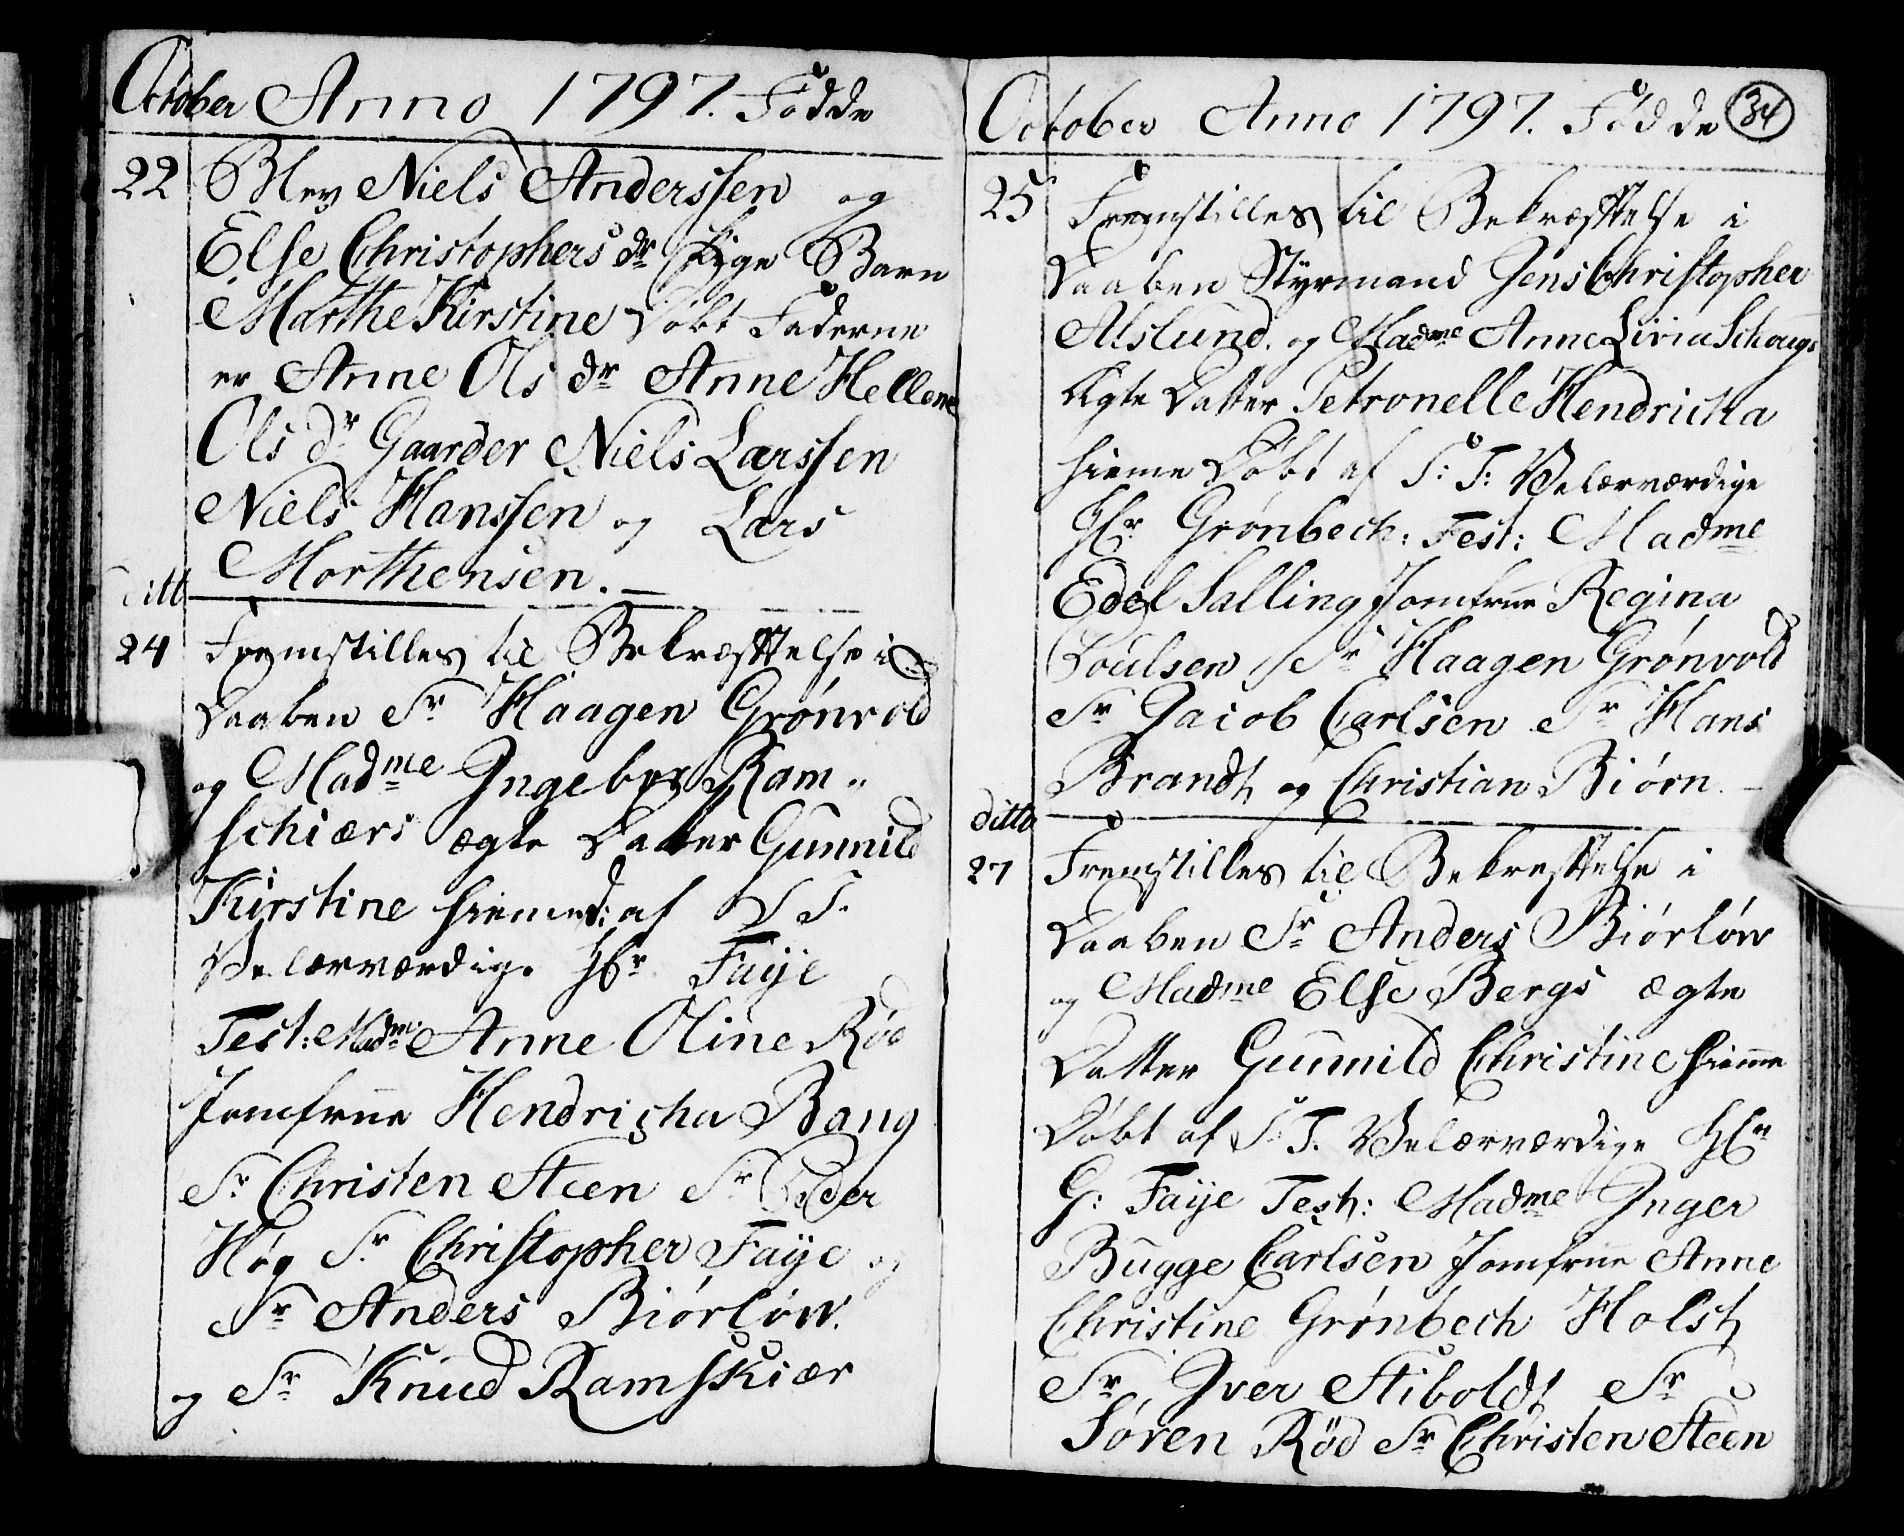 October Anno 1797. Fødde
22 Blev Niels Anderssen og
Else Christophers dr Ægte Barn
Marthe Kirstine Døbt Faderne
er Anne Ols dr Anne Hellene
Ols dr Gaarder Niels Larssen
Niels Hanssen og Lars
Morthensen.
ditt
24 Fremstilles til Bekræftelse i
Daaben Sr Haagen Grønvold
og Madme Ingeber Ram„
schiærs ægte Datter Gunnild
Kirstine hiemed: af S T.
Velærværdige Hr Faÿe
Test: Madm Anne Oline Rød
Jomfrue Hendricha Bang
Sr Christen Steen Sr Peder
Høg Sr Christopher Faÿe og
Sr Anders Biørløw.
og Sr Knud Ramskiær
October Anno 1797. Fødde 34
25 Fremstilles til Bekræftelse i
Daaben Styrmand Jens Christopher
Alslund. og Madme Anne Livia Schougs
Ægte Datter Petronelle Hendricka
hieme Døbt af S: T: Velærværdige
Hr Grønbech: Test: Madme
Edel Salling Jomfrue Regina
Poulsen Sr Haagen Grønvold
Sr Jacob Carlsen Sr Hans
Brandt og Christian Biørn.
ditto
27 Fremstilles til Bekreftelse i
Daaben Sr Anders Biørløw
og Madme Else Bergs ægte
Datter Gunnild Christine hieme
Døbt af S. T. Velærværdige Hr
G: Faÿe Test: Madme Inger
Bugge Carlsen Jomfrue Anne
Christine Grønbech Holst
Sr Iver Stiboldt Sr
Søren Rød Sr Christen Steen